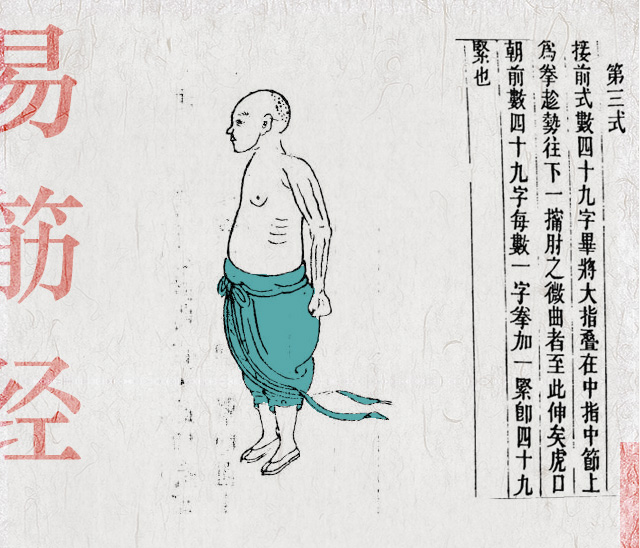 第三式
接前式數四十九字畢將大指疊在中指中節上
為拳趁勢往下一擰肘之微曲者至此伸矣虎口
朝前數四十九字每數一字拳加一緊即四十九
緊也
易筋经